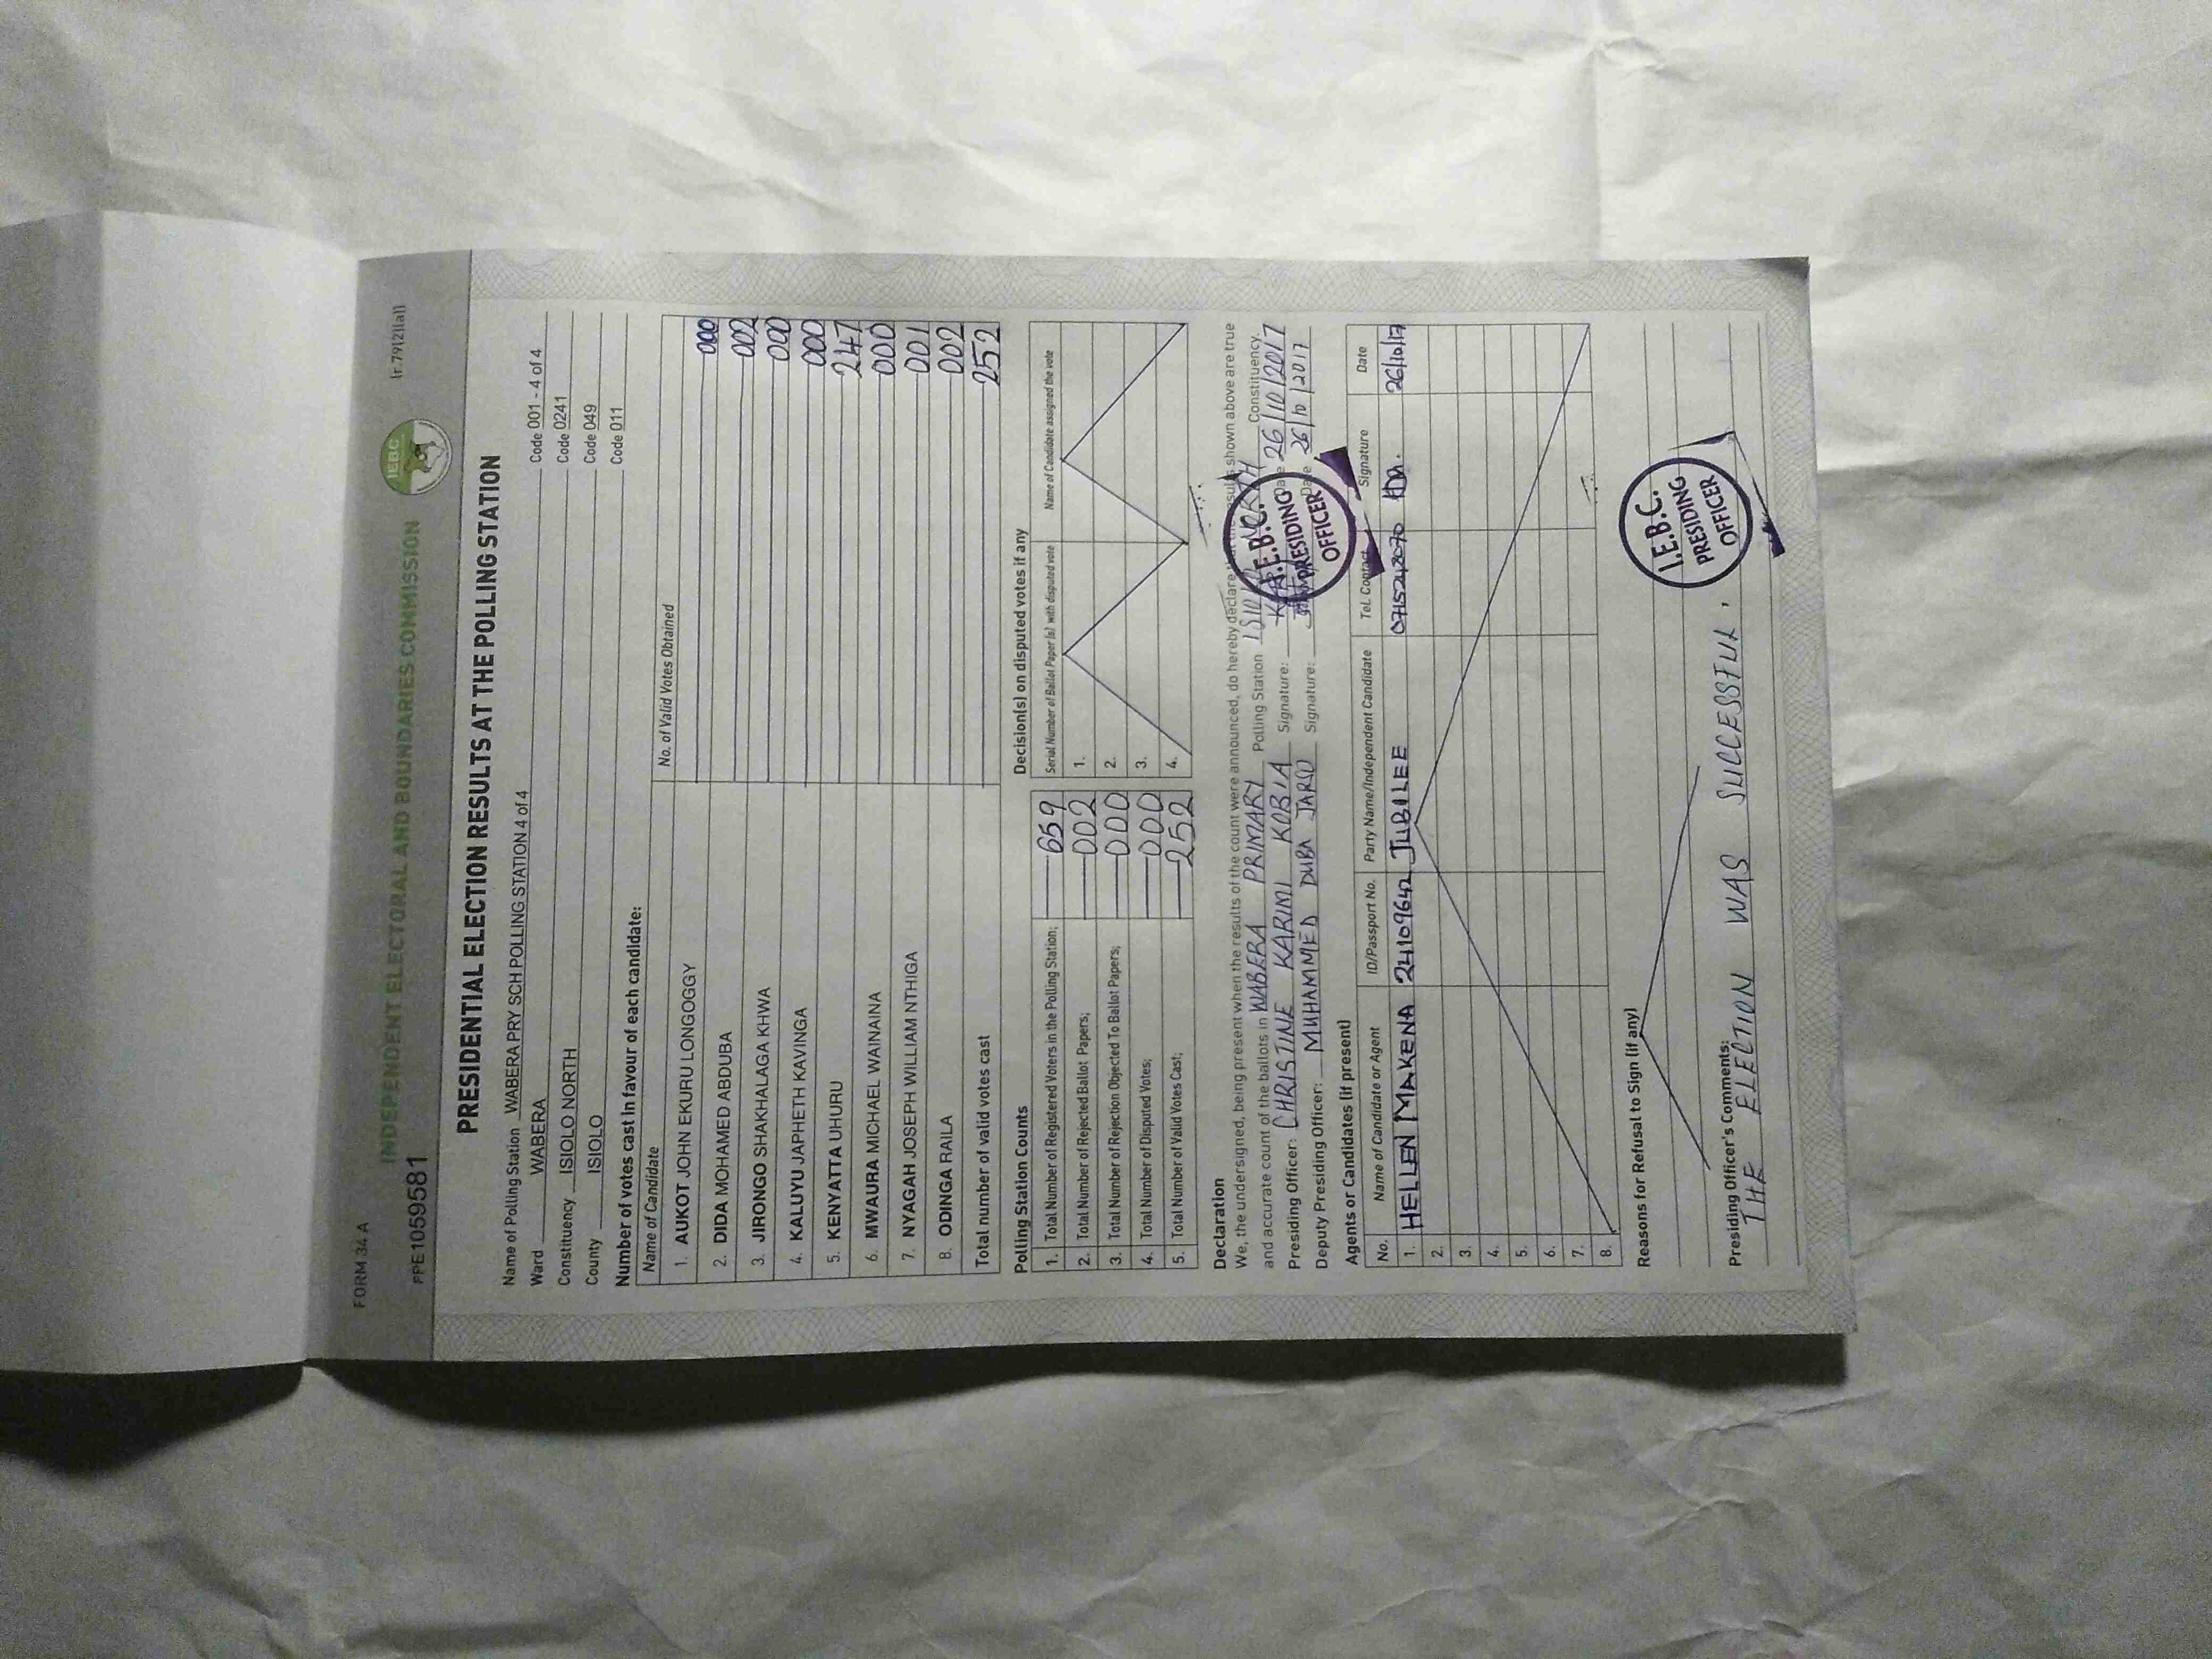 FORM 34 A
(r.79(2)(a))
INDEPENDENT ELECTORAL AND BOUNDARIES COMMISSION
IEBC
PPE1059581
PRESIDENTIAL ELECTION RESULTS AT THE POLLING STATION
Name of Polling Station WABERA PRY SCH POLLING STATION 4 of 4 Code 001 - 4 of 4
Ward WABERA Code 0241
Constituency ISIOLO NORTH Code 049
County ISIOLO Code 011
Number of votes cast in favour of each candidate:
Name of Candidate No. of Valid Votes Obtained
1. AUKOT JOHN EKURU LONGOGGY 000
2. DIDA MOHAMED ABDUBA 002
3. JIRONGO SHAKHALAGA KHWA 000
4. KALUYU JAPHETH KAVINGA 000
5. KENYATTA UHURU 247
6. MWAURA MICHAEL WAINAINA 000
7. NYAGAH JOSEPH WILLIAM NTHIGA 001
8. ODINGA RAILA 002
Total number of valid votes cast 252
Polling Station Counts
1. Total Number of Registered Voters in the Polling Station; 659
2. Total Number of Rejected Ballot Papers; 002
3. Total Number of Rejection Objected To Ballot Papers; 000
4. Total Number of Disputed Votes; 000
5. Total Number of Valid Votes Cast; 252
Decision(s) on disputed votes if any
Serial Number of Ballot Paper (s) with disputed vote Name of Candidate assigned the vote
1.
2.
3.
4.
Declaration
We, the undersigned, being present when the results of the count were announced, do hereby declare that the results shown above are true
and accurate count of the ballots in WABERA PRIMARY Polling Station ISIOLO NORTH Constituency.
Presiding Officer: CHRISTINE KARIMI KOBIA Signature: Date 26/10/2017
Deputy Presiding Officer: MUHAMMED DUBA JARSO Signature: Date 26/10/2017
I.E.B.C.
PRESIDING
OFFICER
Agents or Candidates (if present)
No. Name of Candidate or Agent ID/Passport No. Party Name/Independent Candidate Tel. Contact Signature Date
1. HELLEN MAKENA 24109642 JUBILEE 0715242070 26/10/17
2.
3.
4.
5.
6.
7.
8.
Reasons for Refusal to Sign (if any)
Presiding Officer's Comments:
THE ELECTION WAS SUCCESSFUL.
I.E.B.C.
PRESIDING
OFFICER